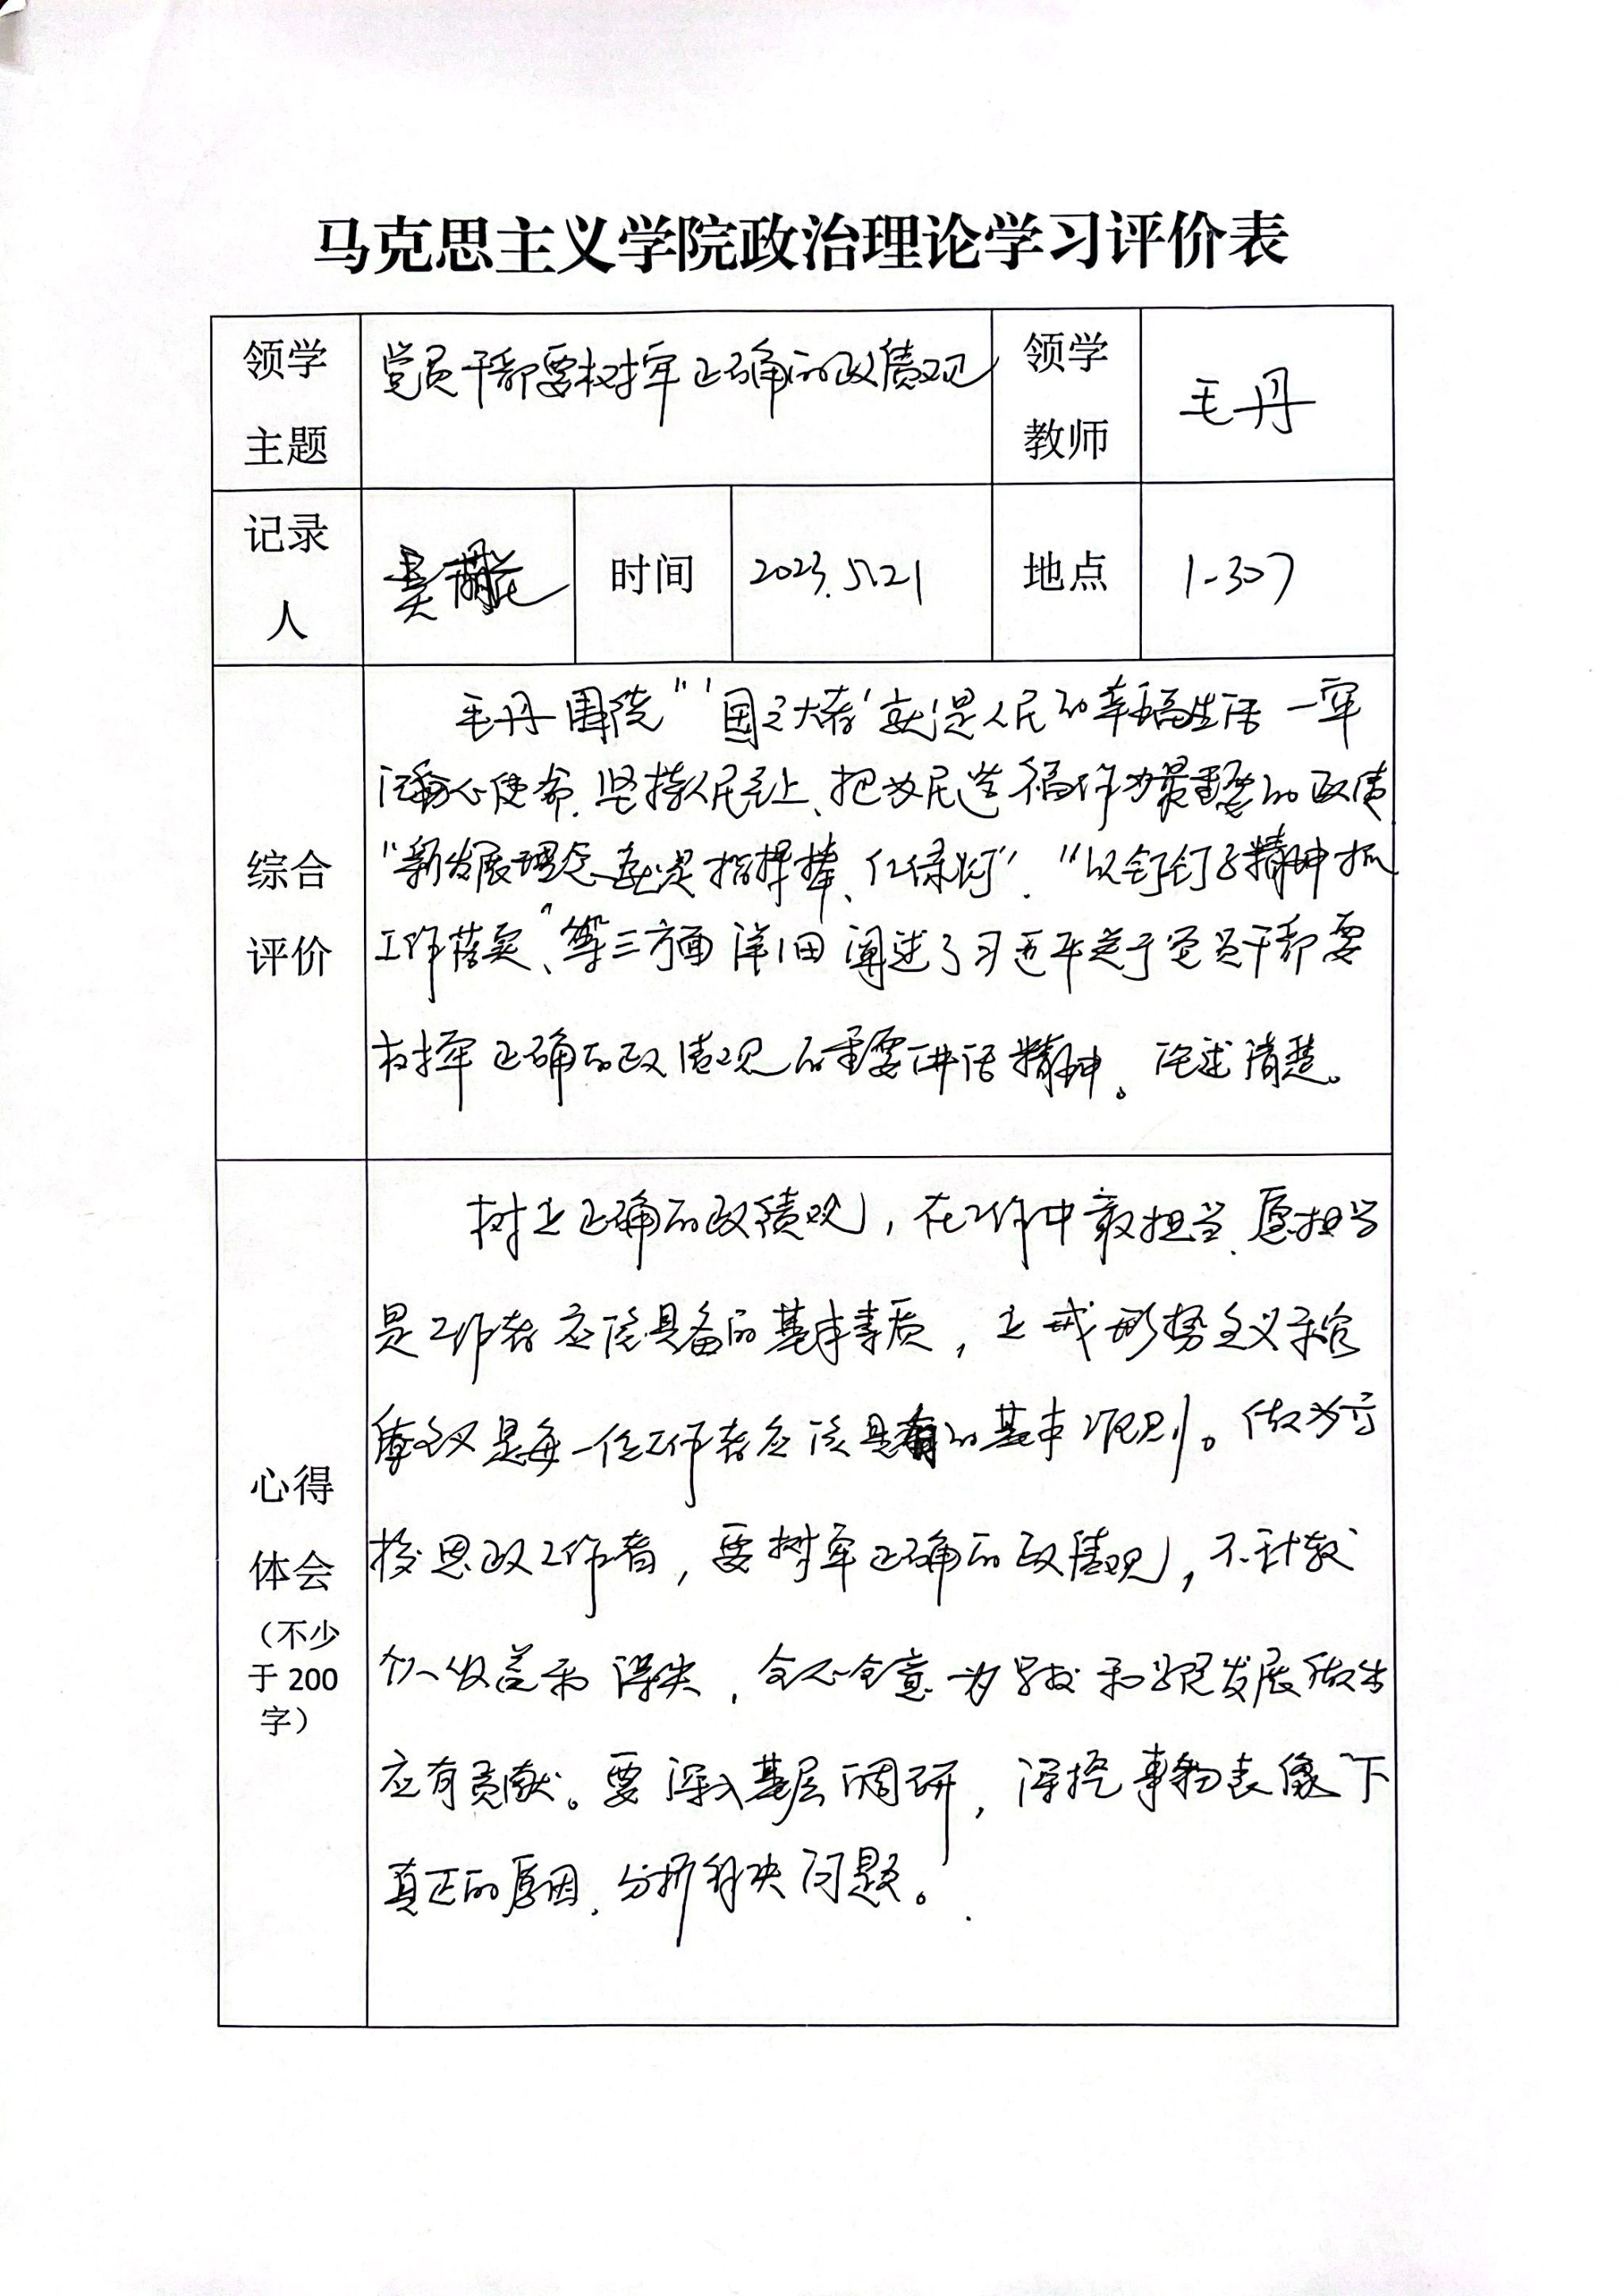 马克思主义学院政治理论学习评价表
领学主题 党员干部要树牢正确的政绩观 领学教师 毛丹
记录人 时间 2023.5.21 地点 1-307
综合评价
毛丹围绕“‘国之大者’就是人民的幸福生活—牢
记初心使命、坚持人民至上、把为民造福作为最重要的政绩
“新发展理念就是指挥棒、红绿灯”、“以钉钉子精神抓
工作落实”、等三方面详细阐述了习近平关于党员干部要
树牢正确的政绩观的重要讲话精神。论述清楚。
心得体会（不少于200字）
树立正确的政绩观，在工作中敢担当、愿担当
是工作者应该具备的基本素质，力戒形势主义和官
僚主义是每一位工作者应该具有的基本准则。做为高
校思政工作者，要树牢正确的政绩观，不计较
个人收益和得失，全心全意为学校和学院发展做出
应有贡献。要深入基层调研，深挖事物表像下
真正的原因、分析解决问题。